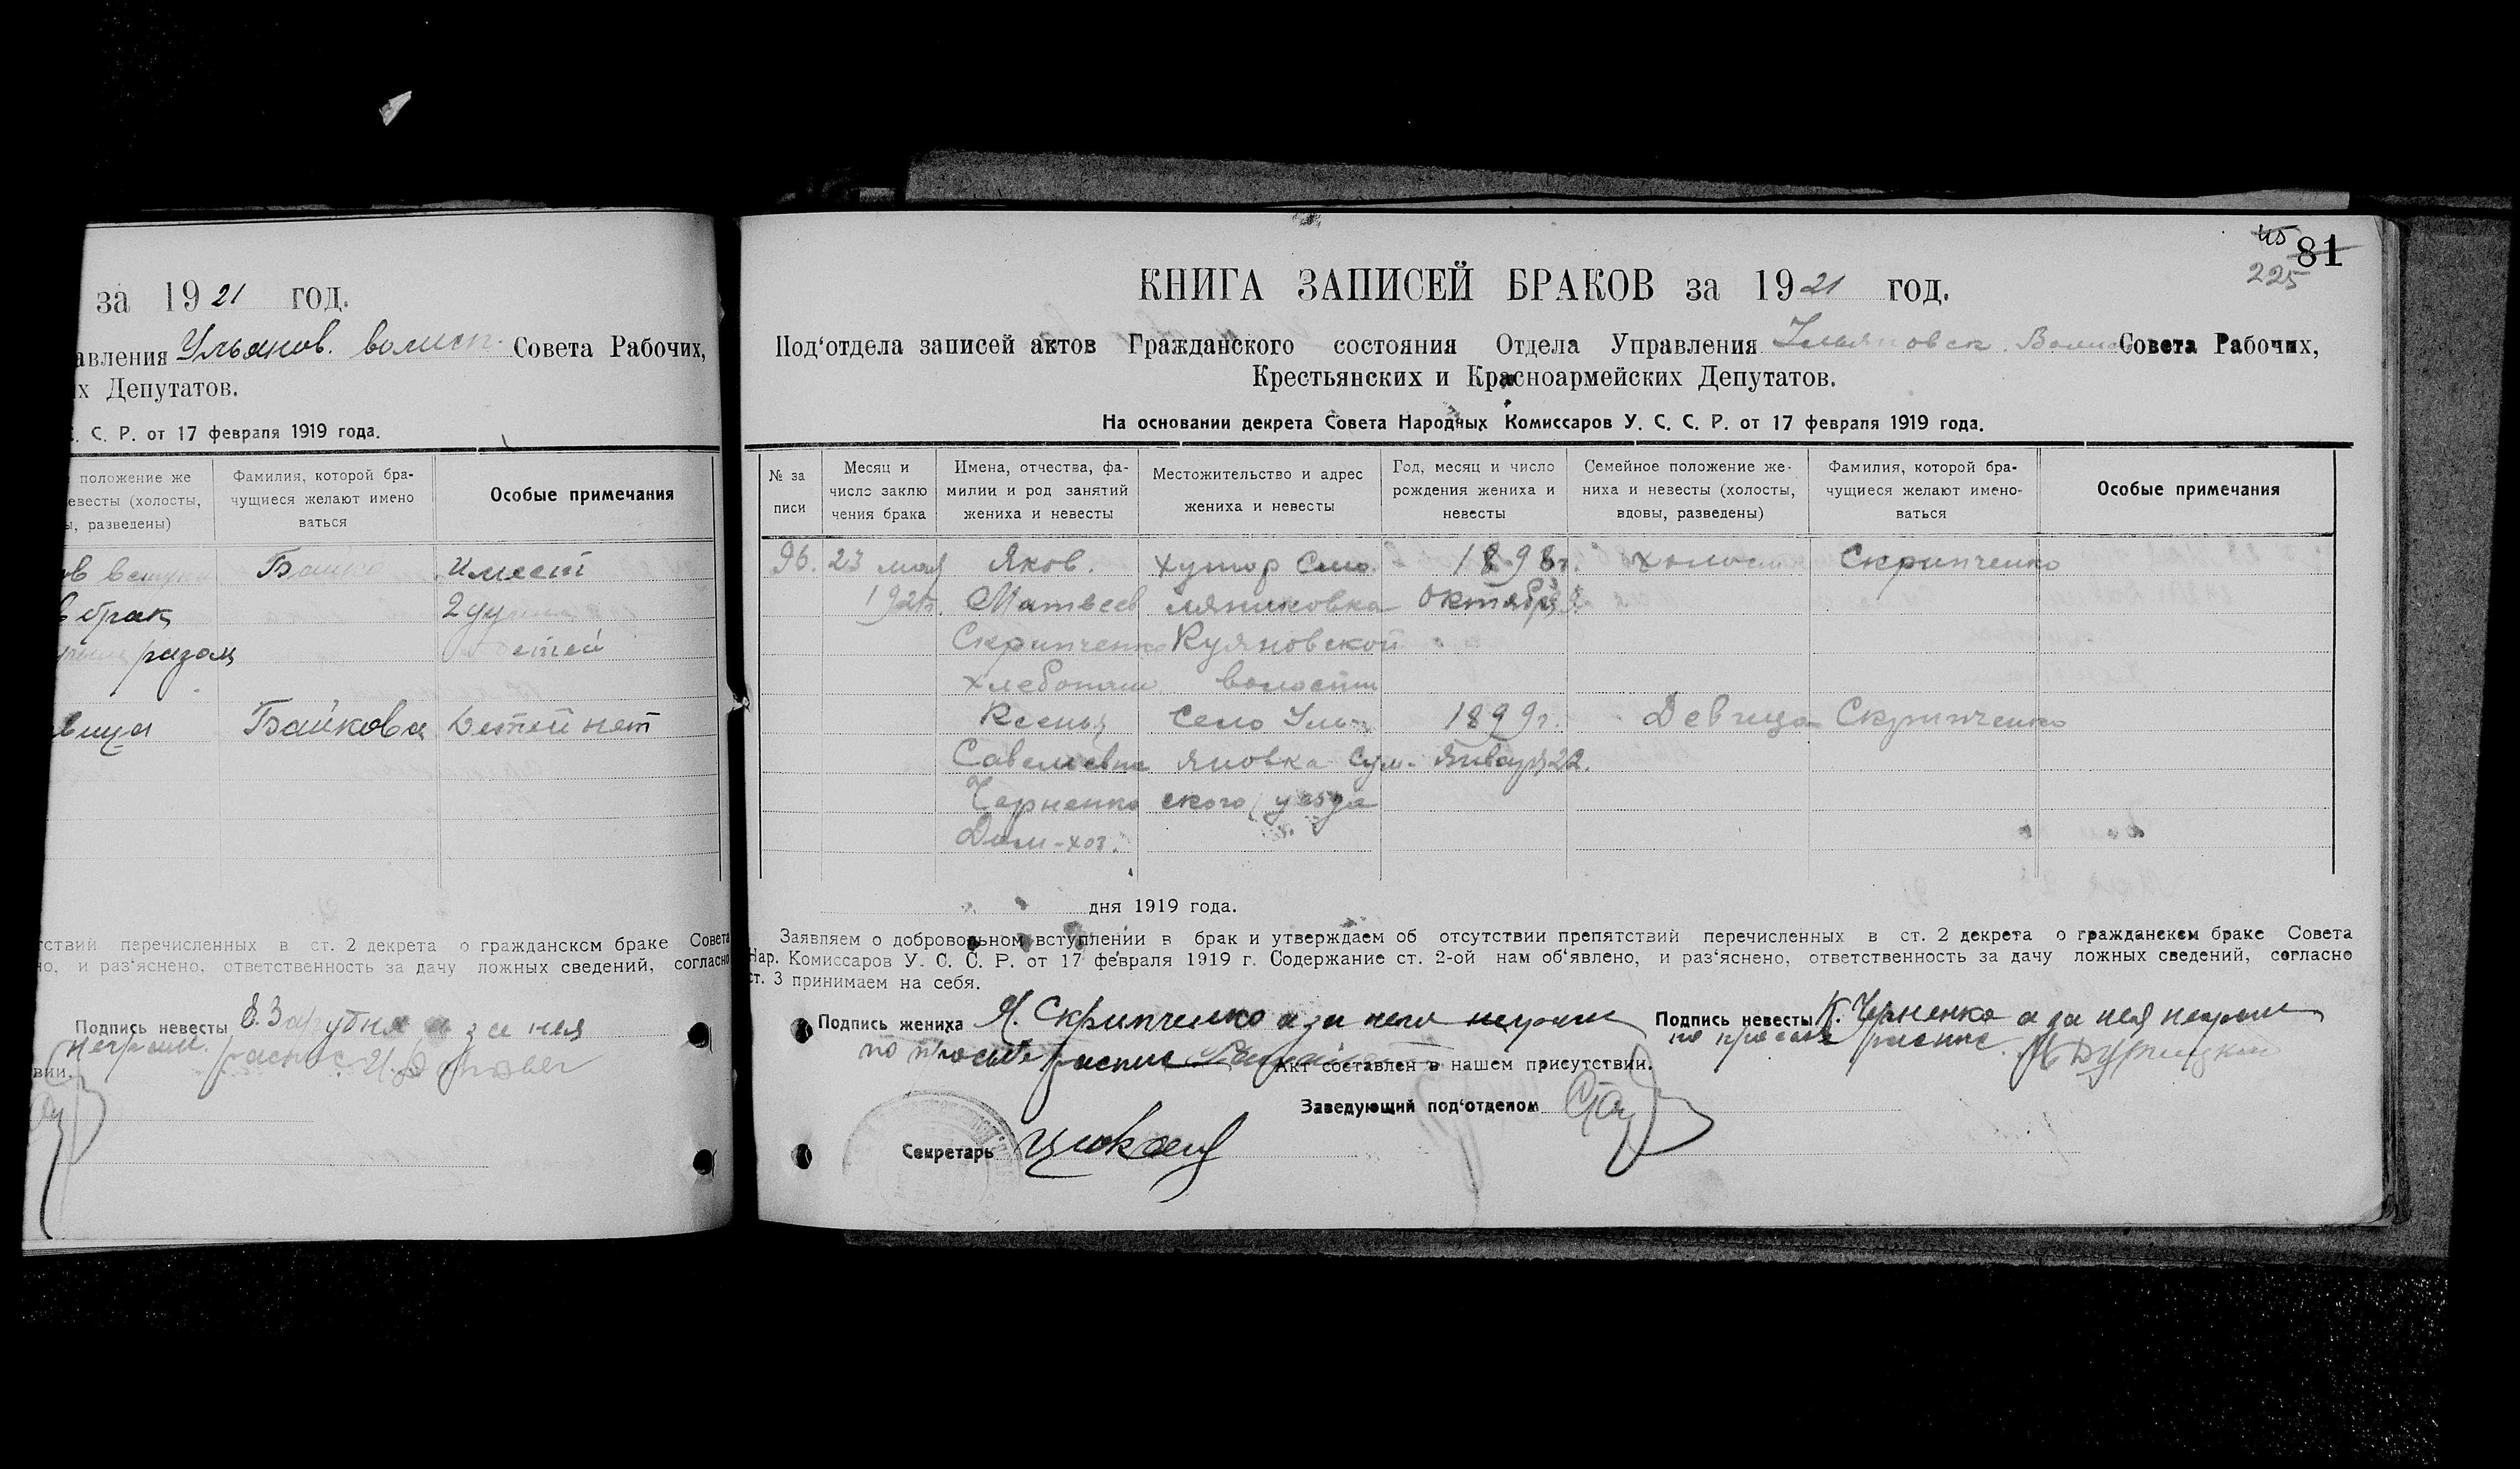 за 1921 год.
авления Ульянов. волисп. Совета Рабочих,
их Депутатов.
С. С. Р. от 17 февраля 1919 года.
положение же
невесты (холосты,
ы, разведены)
Фамилия, которой бра-
чущиеся желают имено
ваться
Особые примечания
имеет
в брак
2 ду
разом
детей
вица Байкова Детей нет
тствий перечисленных в ст. 2 декрета о гражданском браке Совета
но, и раз'яснено, ответственность за дачу ложных сведений, согласно
Подпись невесты Е. Зарубня а за нея
неграм. распис.
вии.
45 81
225
КНИГА ЗАПИСЕЙ БРАКОВ за 1921 год.
Под'отдела записей актов Гражданского состояния Отдела Управления Ульяновск. Волис Совета Рабочих,
Крестьянских и Красноармейских Депутатов.
На основании декрета Совета Народных Комиссаров У. С. С. Р. от 17 февраля 1919 года.
№ за
писи
Месяц и
число заклю
чения брака
Имена, отчества, фа-
милии и род занятий
жениха и невесты
Местожительство и адрес
жениха и невесты
Год, месяц и число
рождения жениха и
невесты
Семейное положение же-
ниха и невесты (холосты,
вдовы, разведены)
Фамилия, которой бра-
чущиеся желают имено-
ваться
Особые примечания
96. 23 мая Яков. хутор Село. 1898г. холост Скрипченко
1921г. Матвеев ляниковка Октября
Скрипченко Куяновской
хлебопаш. волости
Ксенья Село Улья 1899г. Девица Скрипченко
Савельевна яновка Сум- Января 22.
Черненко ского уезда
Дом-хоз.
дня 1919 года.
Заявляем о добровольном вступлении в брак и утверждаем об отсутствии препятствий перечисленных в ст. 2 декрета о гражданском браке Совета
Нар. Комиссаров У. С. С. Р. от 17 февраля 1919 г. Содержание ст. 2-ой нам об'явлено, и раз'яснено, ответственность за дачу ложных сведений, согласно
ст. 3 принимаем на себя.
Подпись жениха Я. Скрипченко а за него неграм
по просьбе распис
Подпись невесты К. Черненко а за нея неграм
по просьбе распис.
Акт составлен в нашем присутствии.
Заведующий под'отделом
Секретарь